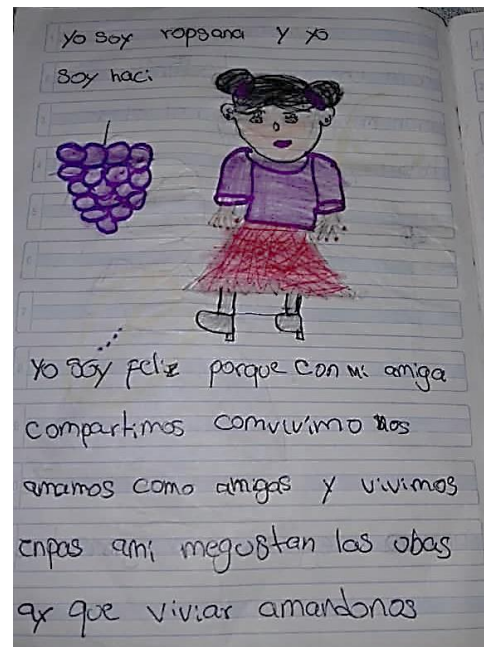 yo soy ropsana y yo
soy haci
yo soy feliz porque con mi amiga
compartimos comvivimo nos
amamos como amigas y vivimos
enpas ami megustan las obas
ay que viviar amandonos